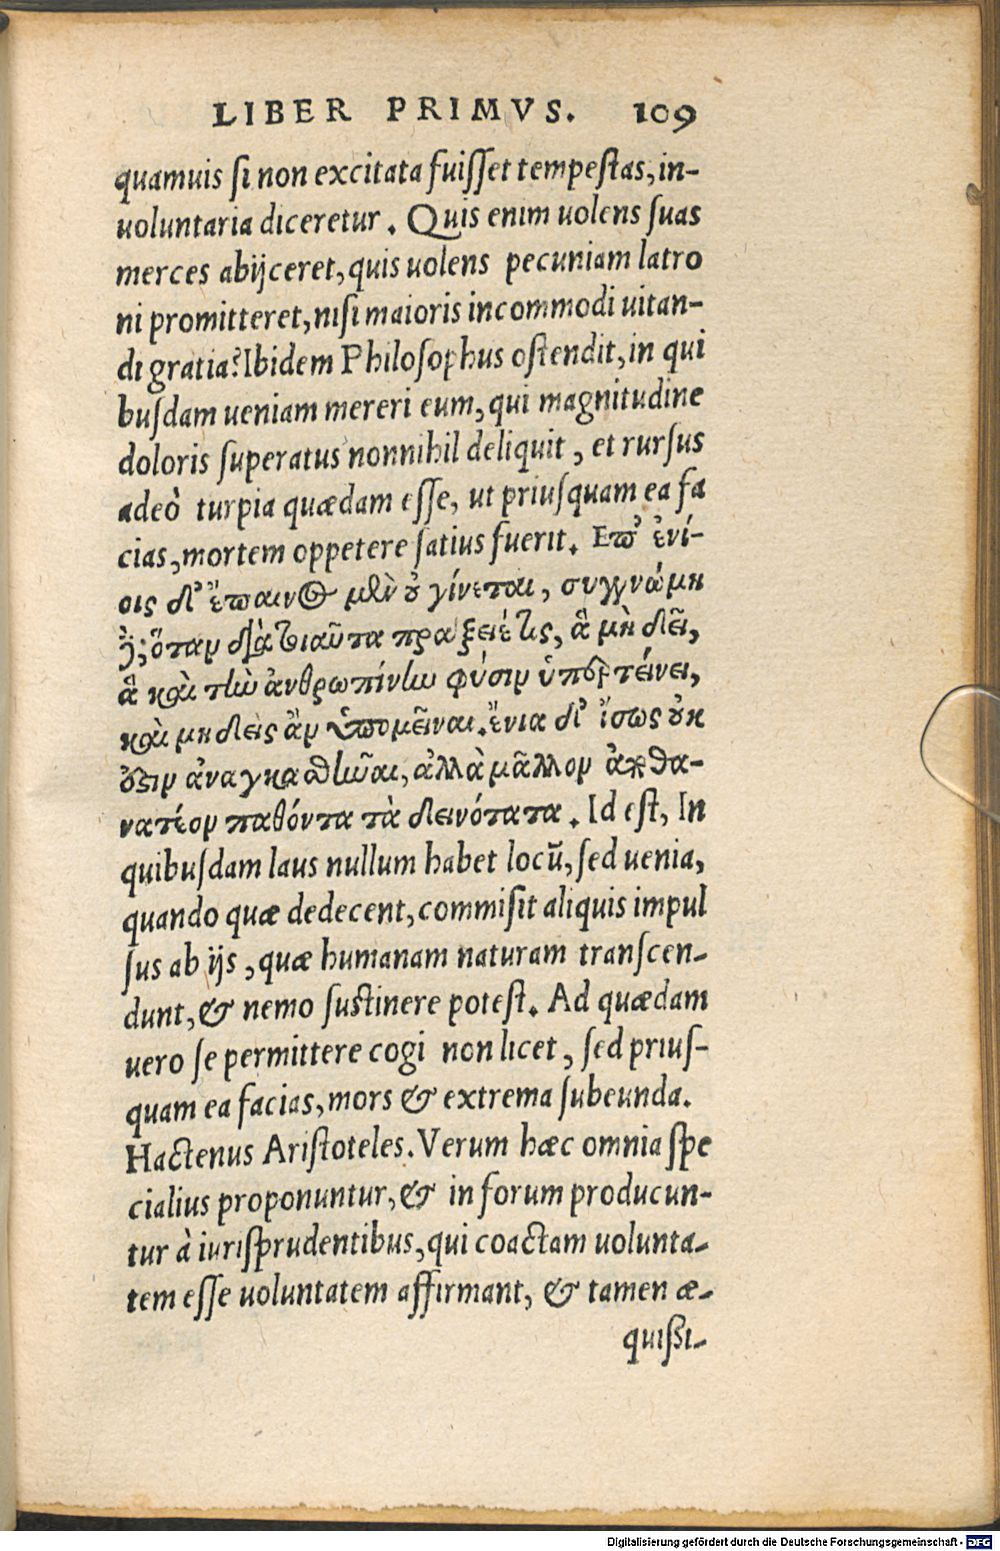 LIBER PRIMVS. 109
quamuis si non excitata fuisset tempestas, in-
uoluntaria diceretur. Quis enim uolens suas
merces abijceret, quis uolens pecuniam latro
ni promitteret, nisi maioris incommodi uitan-
di gratia? Ibidem Philosophus ostendit, in qui
busdam ueniam mereri eum, qui magnitudine
doloris superatus nonnihil deliquit, et rursus
adeò turpia quædam esse, ut priusquam ea fa
cias, mortem oppetere satius fuerit. Επ᾽ ἐνί-
οις δ᾽ ἔπαινος μὲν οὐ γίνεται, συγγνώμη
δ᾽, ὅταν διὰ τοιαῦτα πράξειέ τις, ἃ μὴ δεῖ,
ἃ καὶ τὴν ἀνθρωπίνην φύσιν ὑπερτείνει,
καὶ μηδεὶς ἂν ὑπομεῖναι. ἔνια δ᾽ ἴσως οὐκ
ἔστιν ἀναγκασθῆναι, ἀλλὰ μᾶλλον ἀποθα-
νατέον παθόντα τὰ δεινότατα. Id est, In
quibusdam laus nullum habet locū, sed uenia,
quando quæ dedecent, commisit aliquis impul
sus ab ijs, quæ humanam naturam transcen-
dunt, & nemo sustinere potest. Ad quædam
uero se permittere cogi non licet, sed prius-
quam ea facias, mors & extrema subeunda.
Hactenus Aristoteles. Verum hæc omnia spe
cialius proponuntur, & in forum producun-
tur à iurisprudentibus, qui coactam uolunta-
tem esse uoluntatem affirmant, & tamen æ-
quissi-
Digitalisierung gefördert durch die Deutsche Forschungsgemeinschaft - DFG